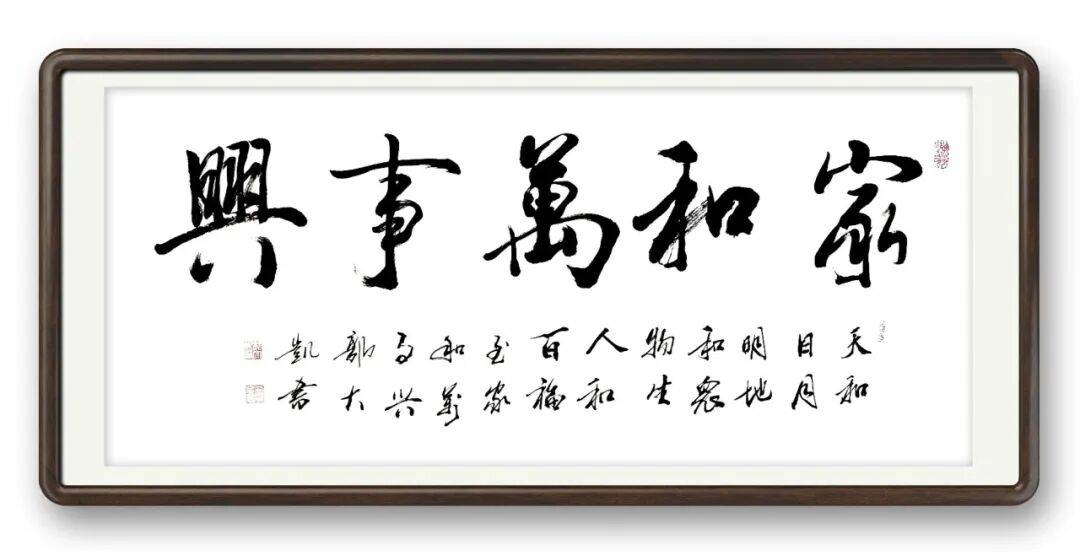 家和萬事興
天和
日月
明地
和衆
物生
人和
百福
至家
和萬
事兴
郭大
凱書